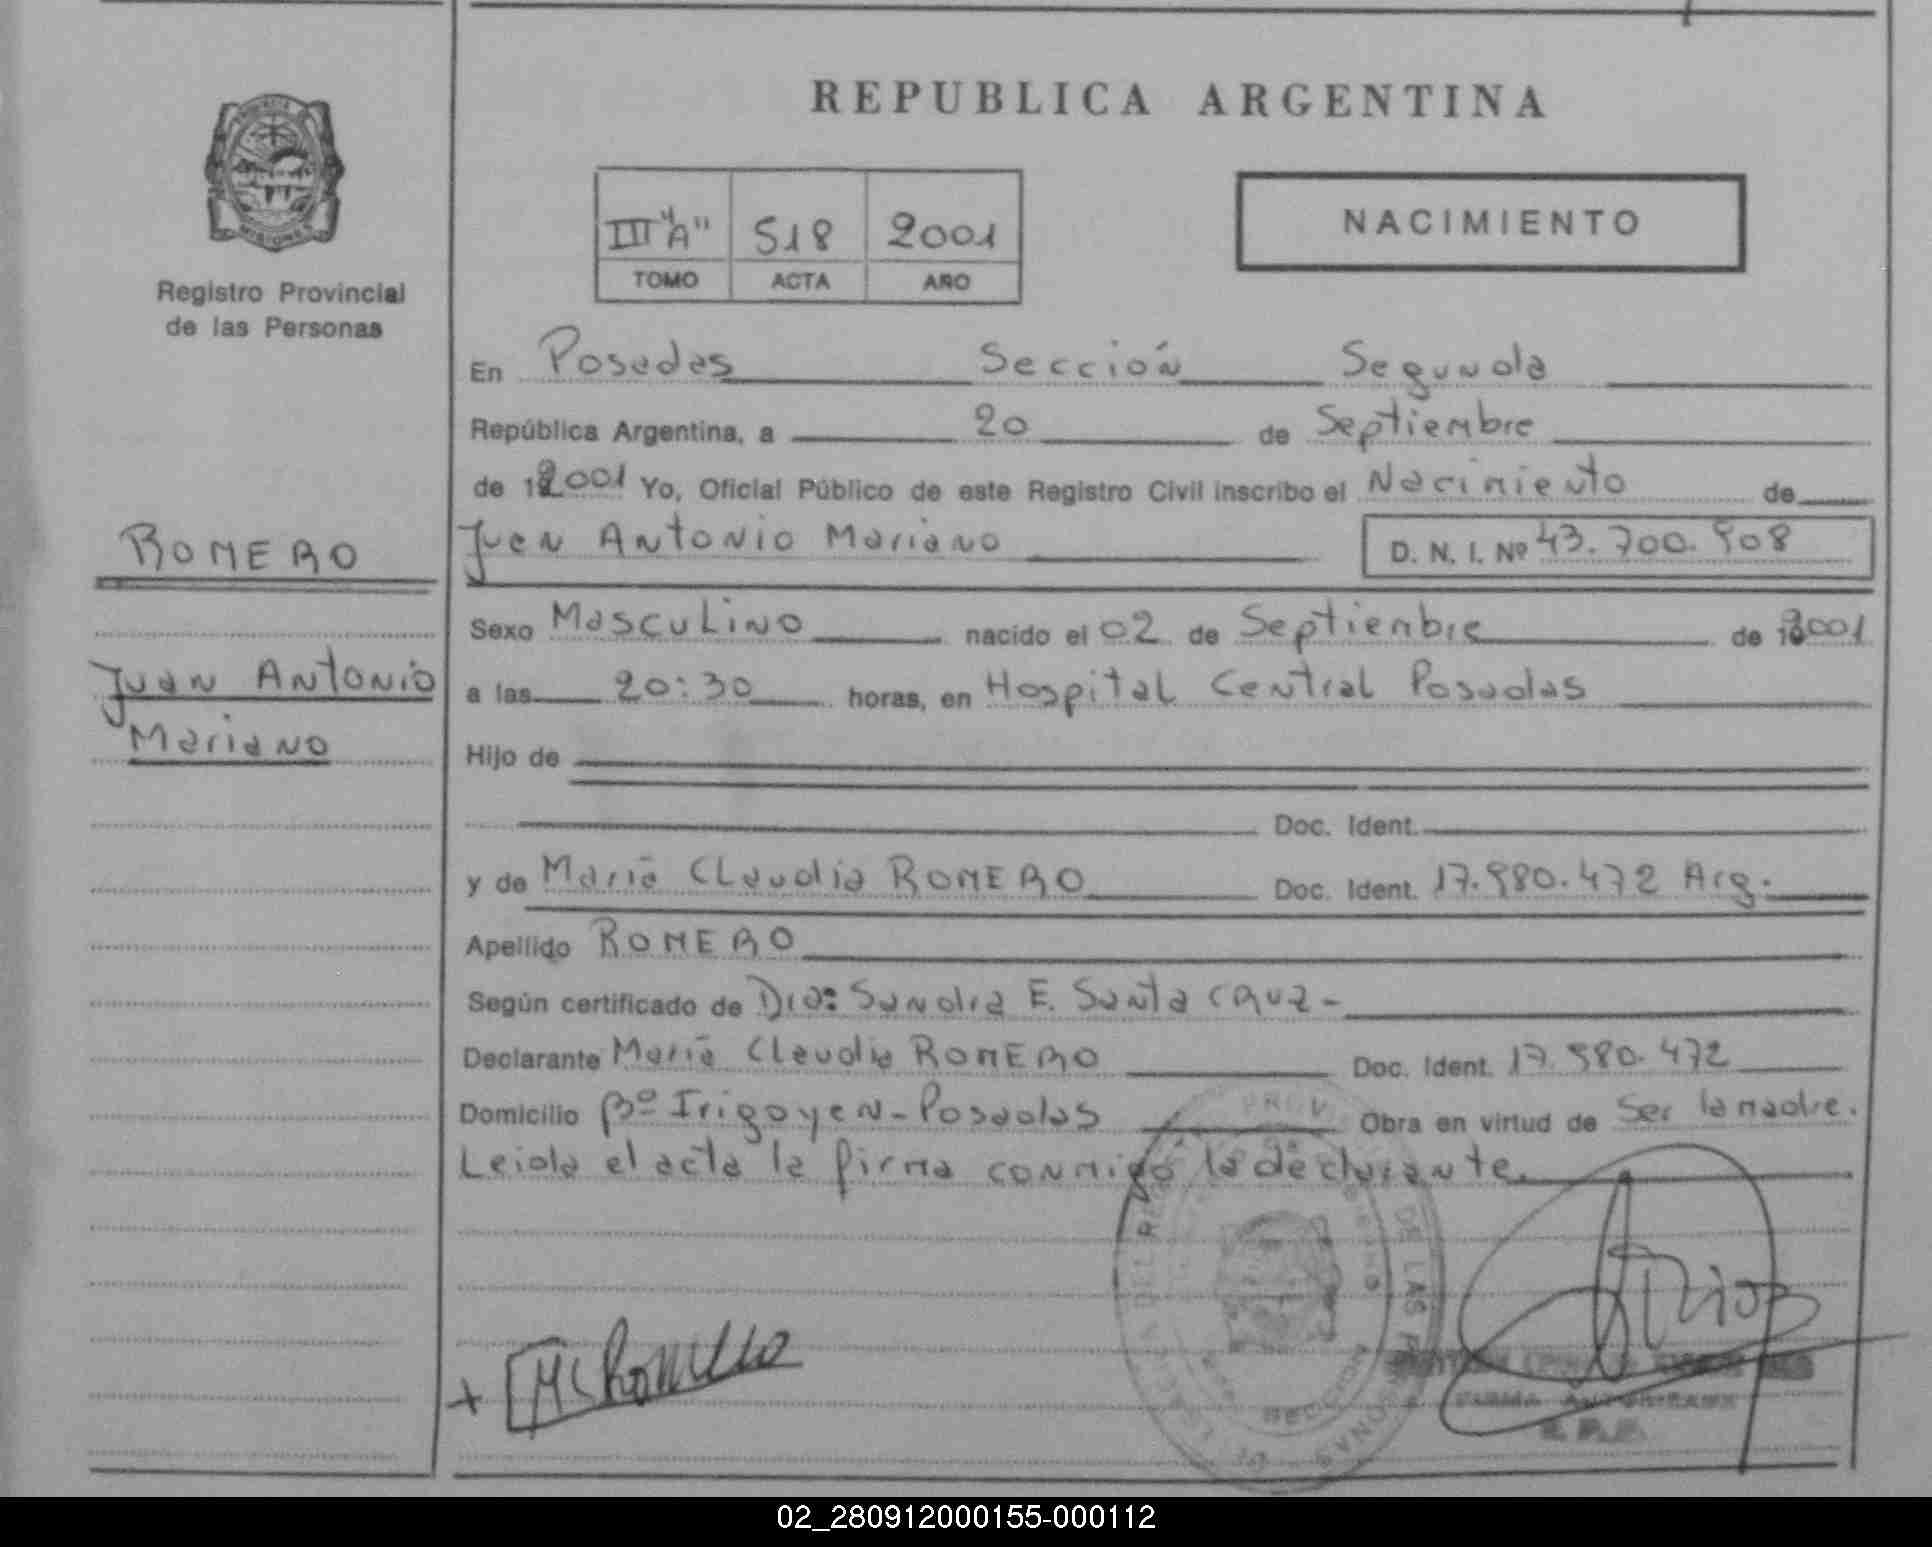 REPUBLICA ARGENTINA
III "A" 518 2001
TOMO ACTA AÑO
NACIMIENTO
MISIONES
Registro Provincial
de las Personas
ROMERO
Juan Antonio
Mariano
En Posadas Sección Segunda
República Argentina, a 20 de Septiembre
de 2001 Yo, Oficial Público de este Registro Civil inscribo el Nacimiento de
Juan Antonio Mariano D. N. I. Nº 43.700.908
Sexo Masculino nacido el 02 de Septiembre de 2001
a las 20:30 horas, en Hospital Central Posadas
Hijo de
Doc. Ident.
y de María Claudia ROMERO Doc. Ident. 17.980.472 Arg.
Apellido ROMERO
Según certificado de Dra: Sandra E. Santa Cruz -
Declarante María Claudia ROMERO Doc. Ident. 17.980.472
Domicilio Bº Irigoyen - Posadas Obra en virtud de Ser la madre.
Leida el acta la firma conmigo la declarante.
+ MC Romero
DE LAS
FIRMA AUTORIZADA
02_280912000155-000112